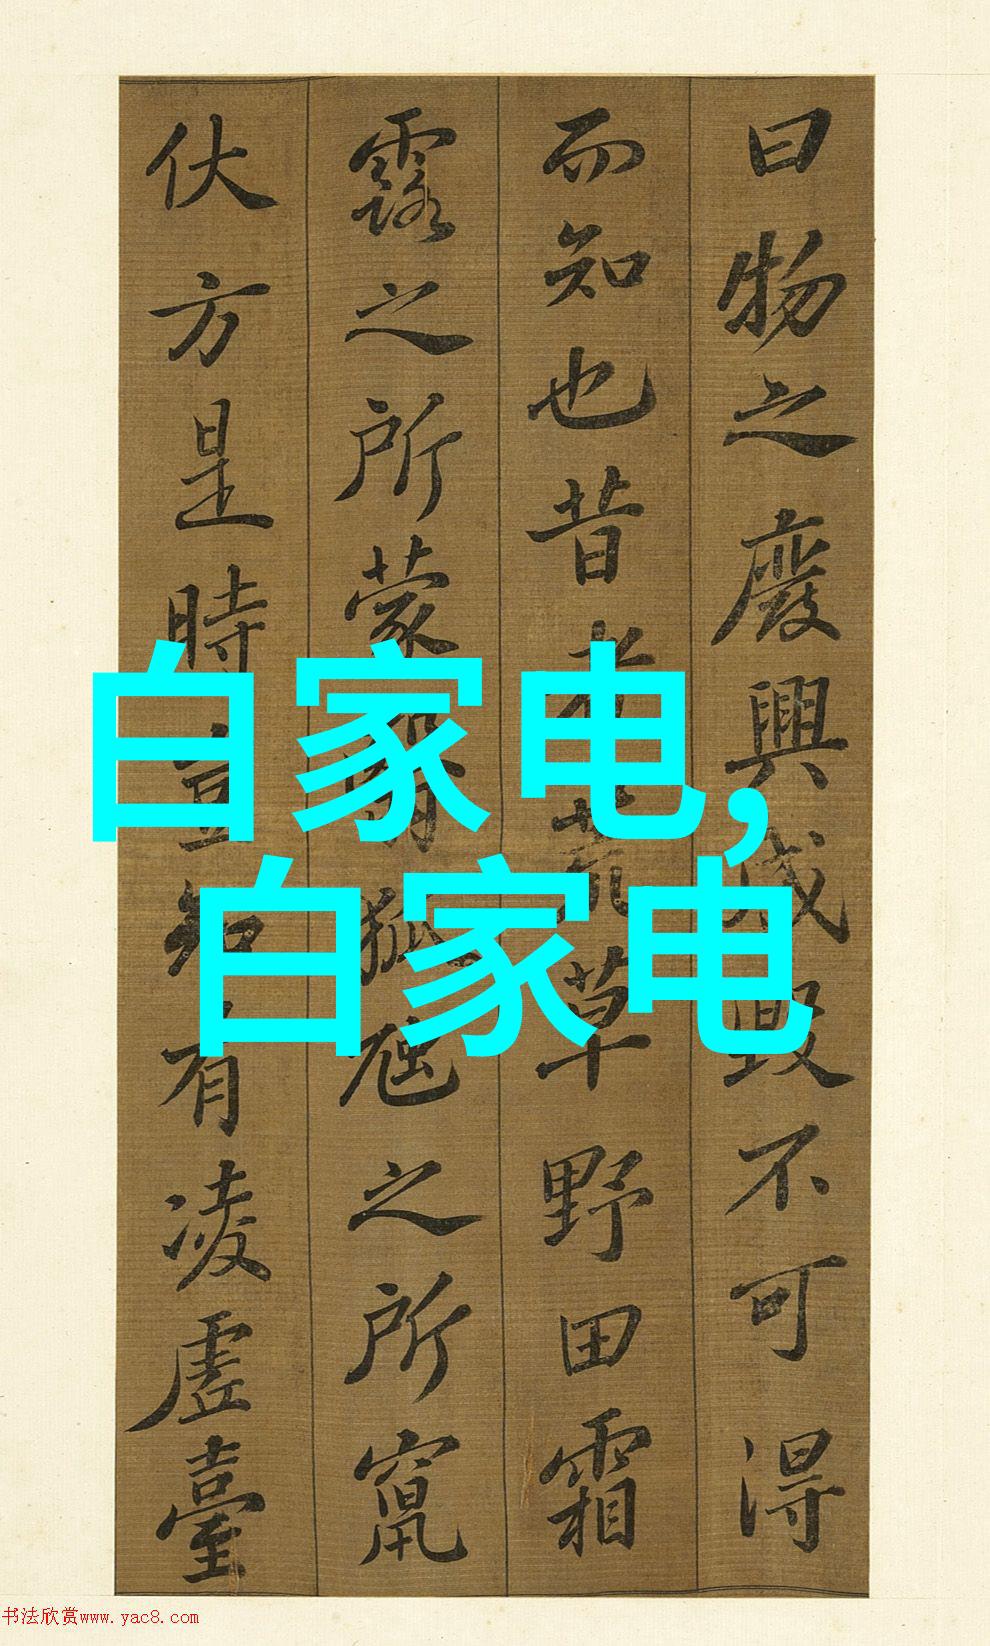 曰物之廢興成毀不可得
而知也昔者荒草野田霜
露之所蒙翳狐虺之所竄
伏方是時豈知有凌虛臺
白家电,
白家电
书法欣赏www.yac8.com